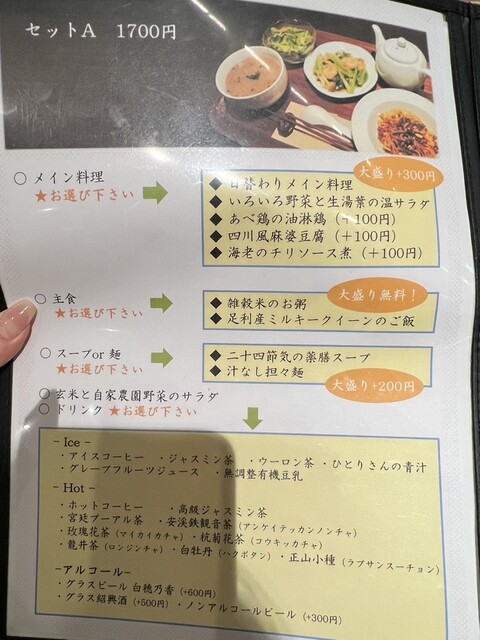 セットA 1700円
○ メイン料理
★お選び下さい
大盛り+300円
◆ 日替わりメイン料理
◆ いろいろ野菜と生湯葉の温サラダ
◆ あべ鶏の油淋鶏（＋100円）
◆ 四川風麻婆豆腐（＋100円）
◆ 海老のチリソース煮（＋100円）
○ 主食
★お選び下さい
大盛り無料！
◆ 雑穀米のお粥
◆ 足利産ミルキークイーンのご飯
○ スープor 麺
★お選び下さい
◆ 二十四節気の薬膳スープ
◆ 汁なし担々麺
大盛り+200円
○ 玄米と自家農園野菜のサラダ
○ ドリンク ★お選び下さい
- Ice -
・アイスコーヒー ・ジャスミン茶 ・ウーロン茶 ・ひとりさんの青汁
・グレープフルーツジュース ・無調整有機豆乳
- Hot -
・ホットコーヒー ・高級ジャスミン茶
・宮廷プーアル茶 ・安渓鉄観音茶（アンケイテッカンノンチャ）
・玫瑰花茶（マイカイカチャ） ・杭菊花茶（コウキッカチャ）
・龍井茶（ロンジンチャ） ・白牡丹（ハクボタン） ・正山小種（ラプサンスーチョン）
-アルコール-
・グラスビール 白穂乃香（+600円）
・グラス紹興酒（+500円） ・ノンアルコールビール（+300円）